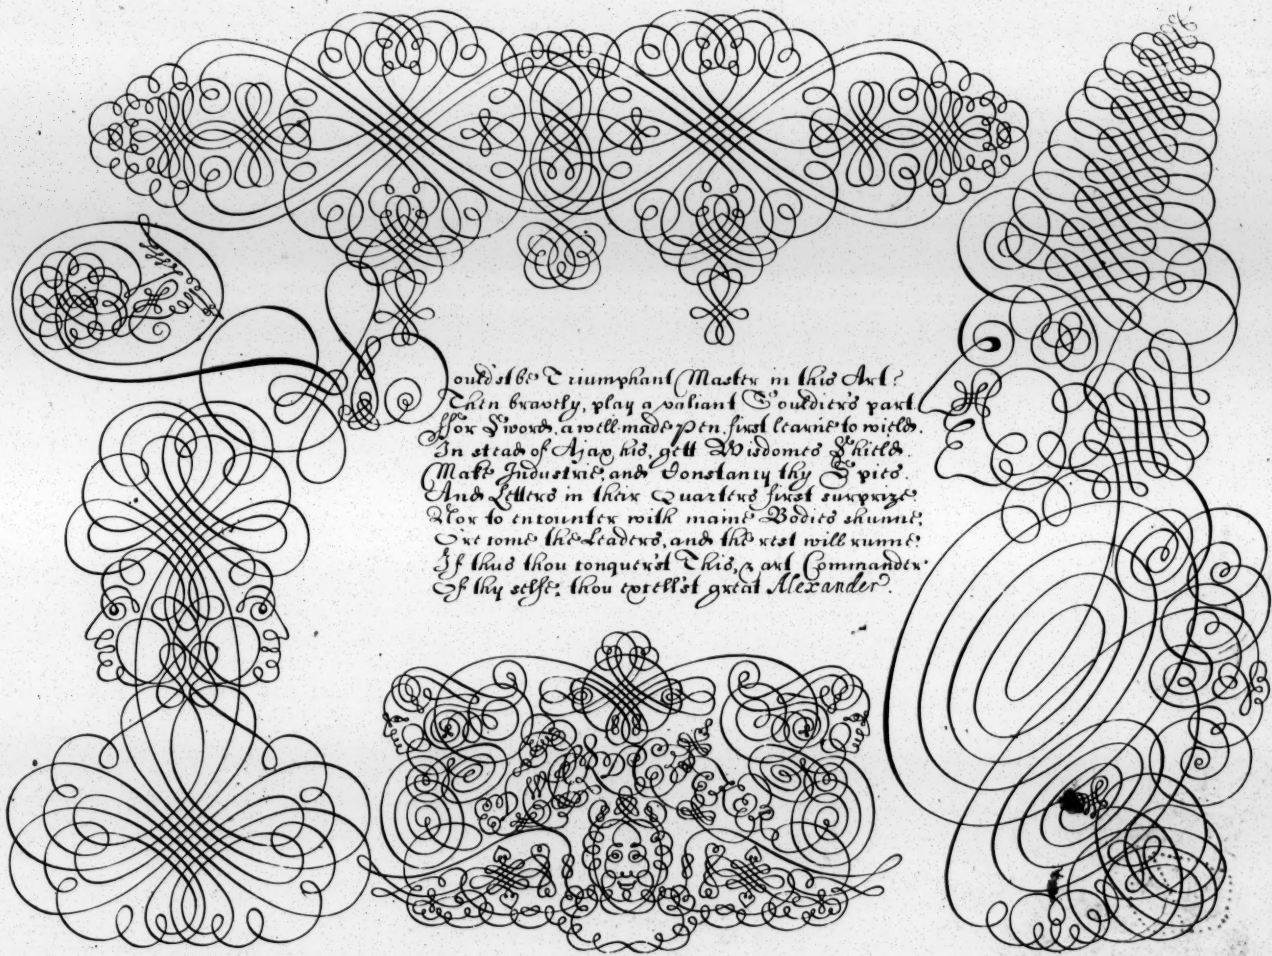 ould'st be Triumphant Master in this Art?
Then bravely, play a valiant Souldier's part.
ffor Sword, a well-made Pen, first learne to wield.
In stead of Ajax his, gett Wisdomes Shield.
Make Industrie, and Constancy thy Spies.
And Letters in their Quarters first surprize
Nor to encounter with maine Bodies shunne;
O're come the Leaders, and the rest will runne:
If thus thou conquer'st This, & art Commander
Of thy selfe; thou excell'st great Alexander.